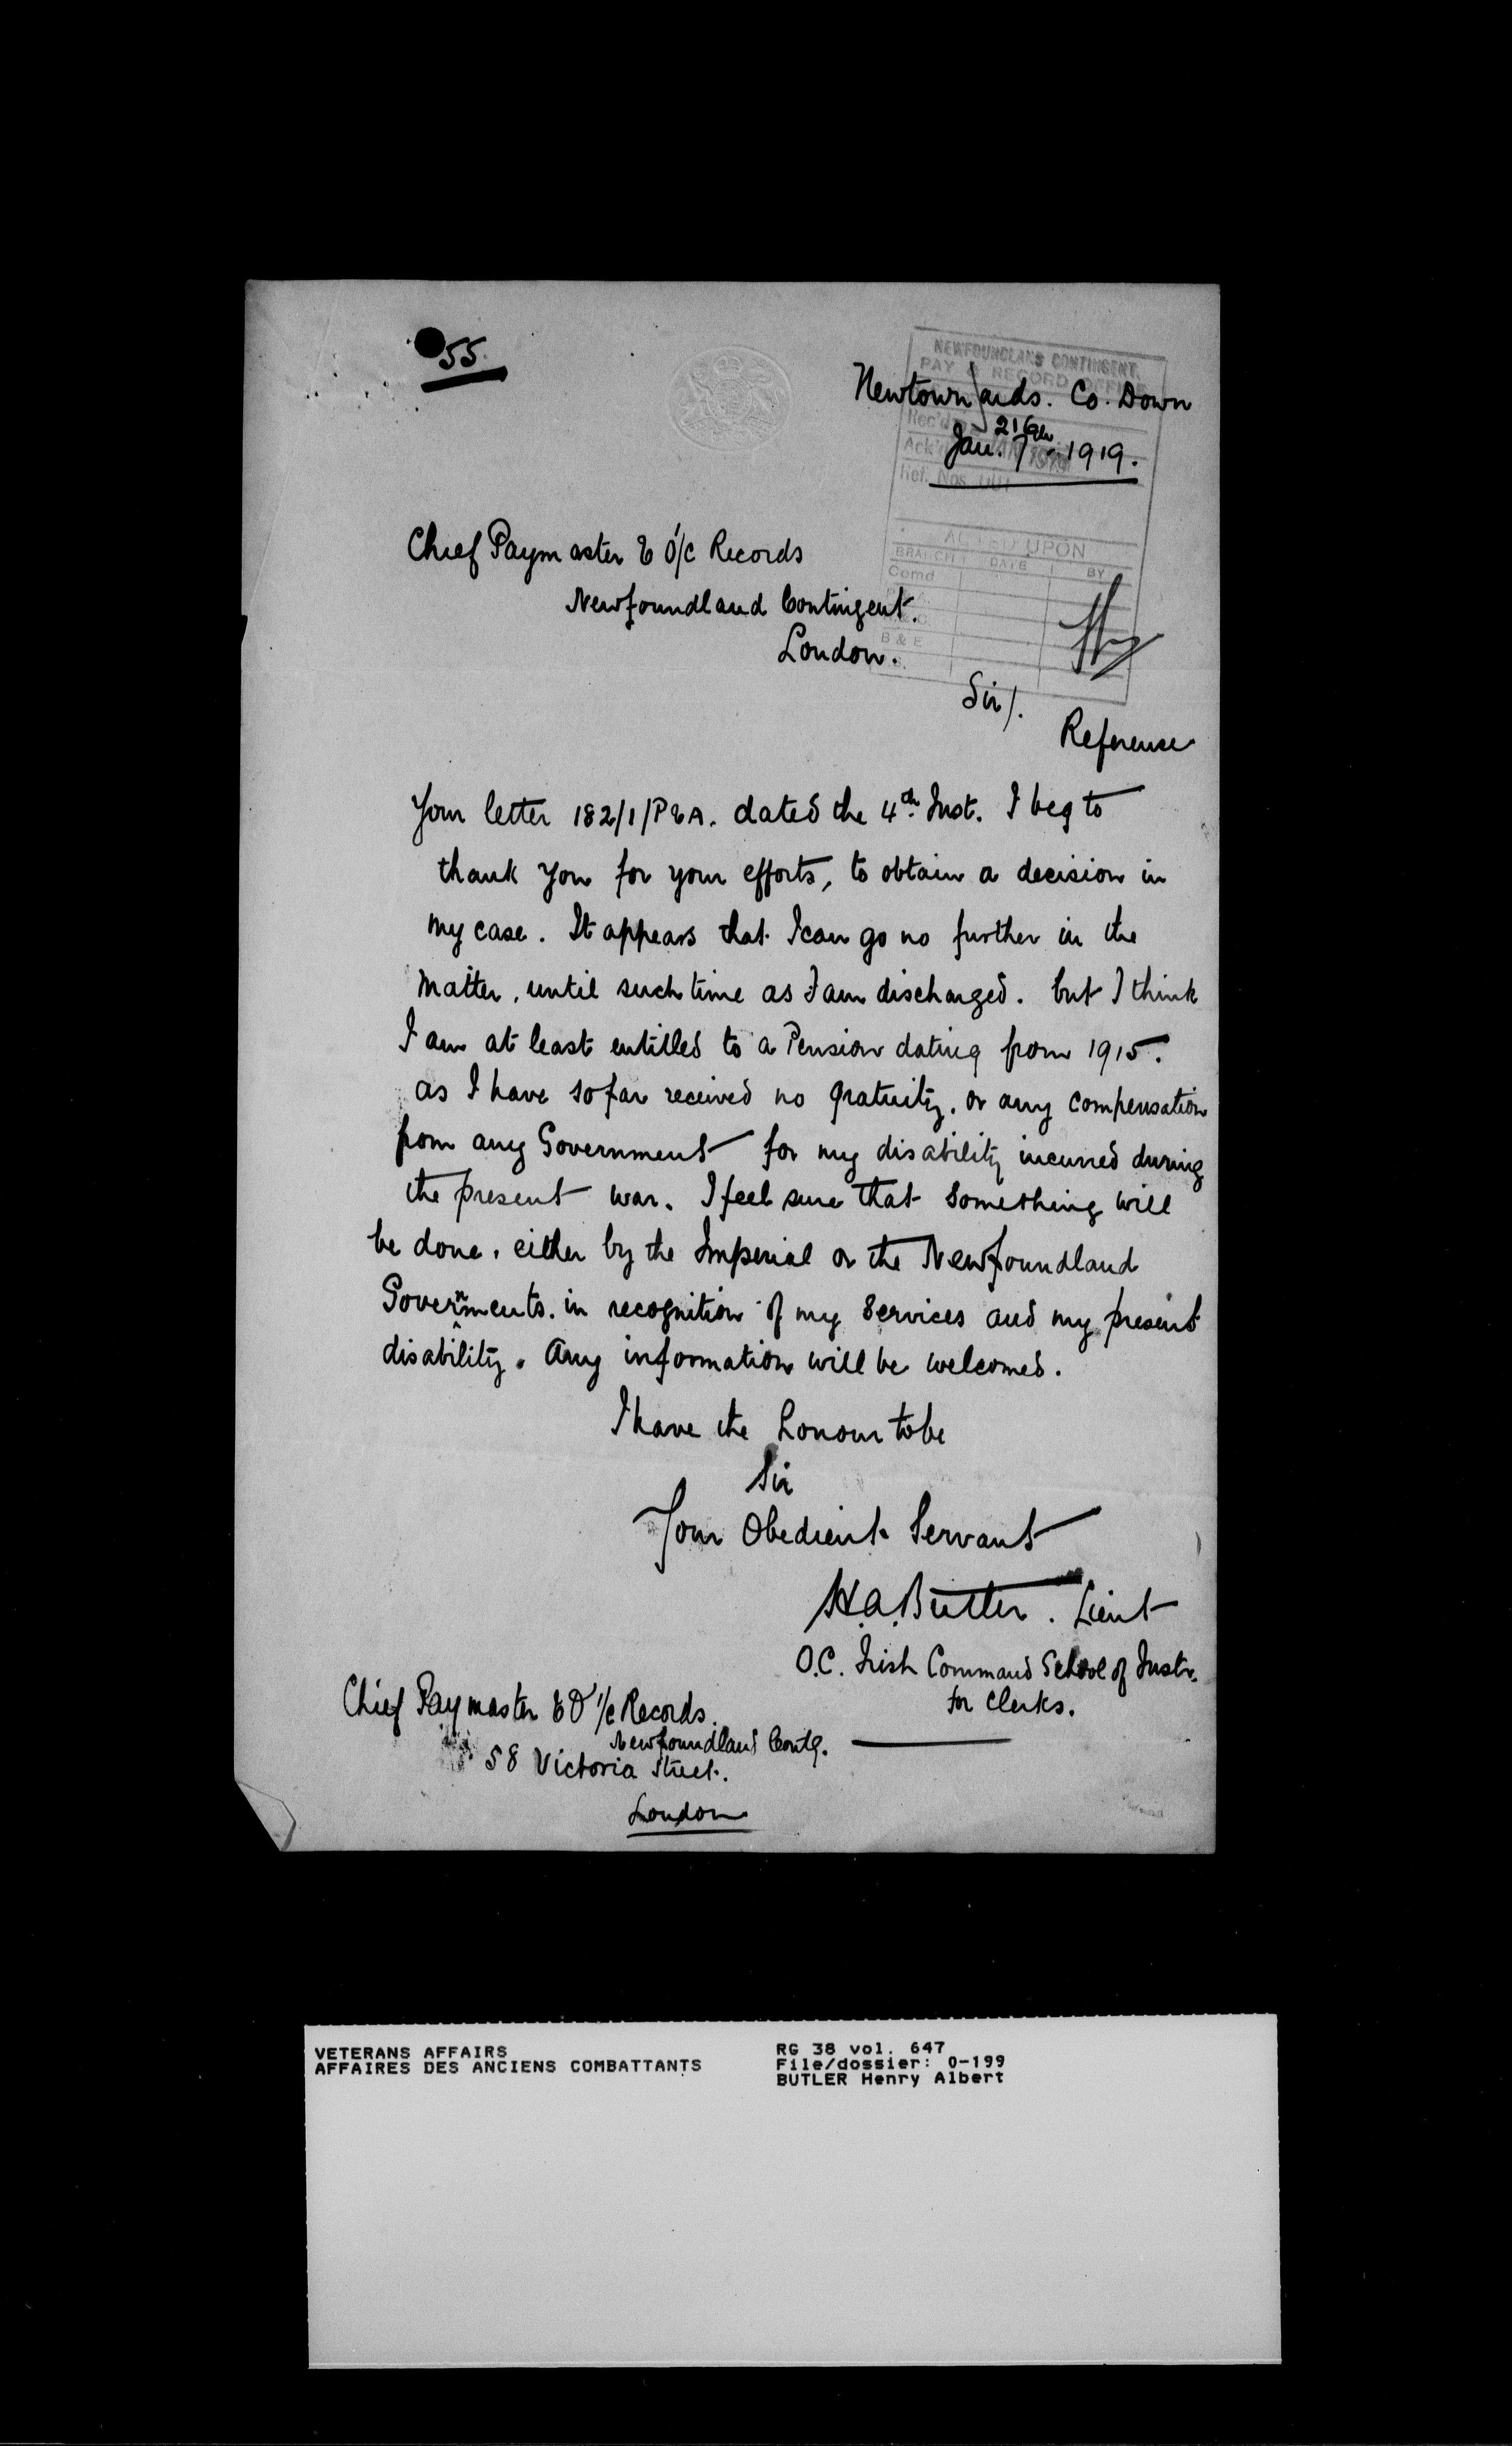 55
NEWFOUNDLAND CONTINGENT,
PAY & RECORD OFFICE
Newtownards. Co. Down
Rec'd
Jan. 7th 1919.
Ack'd
Ref. Nos. OUT
ACTED UPON
BRANCH DATE BY
Comd
B & E
Chief Paymaster & O i/c Records
Newfoundland Contingent.
London.
Sir/.
Reference
Your letter 182/1/P&A. dated the 4th Inst. I beg to
thank you for your efforts, to obtain a decision in
my case. It appears that I can go no further in the
matter, until such time as I am discharged. but I think
I am at least entitled to a Pension dating from 1915.
as I have so far received no gratuity, or any compensation
from any Government for my disability incurred during
the present war. I feel sure that something will
be done, either by the Imperial or the Newfoundland
Governments. in recognition of my services and my present
disability. Any information will be welcomed.
I have the honour to be
Sir
Your Obedient Servant
H.A. Butler. Lieut
O.C. Irish Command School of Instr.
for Clerks.
Chief Paymaster & O i/c Records.
Newfoundland Contg.
58 Victoria Street.
London
VETERANS AFFAIRS
AFFAIRES DES ANCIENS COMBATTANTS
RG 38 vol. 647
File/dossier: 0-199
BUTLER Henry Albert